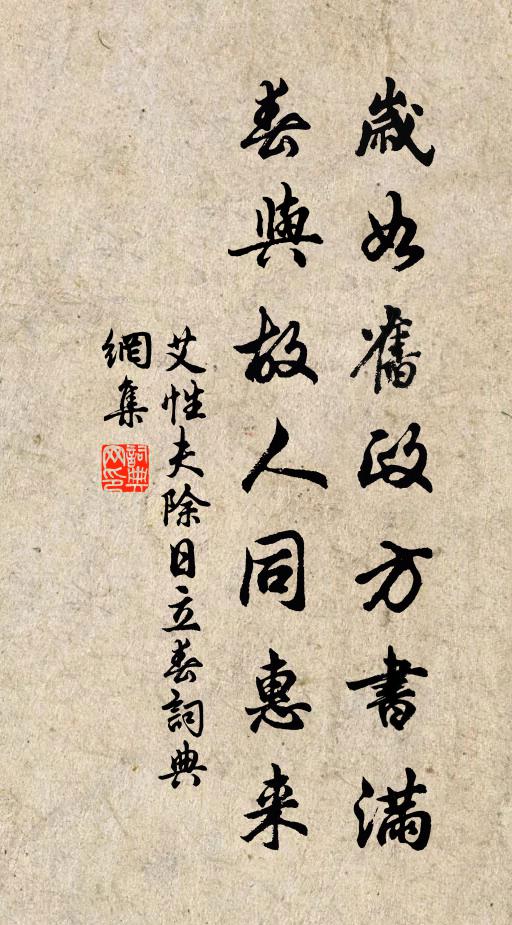 歲如舊政方書滿
春與故人同惠来
艾性夫除日立春詞典
網集
詞典
网印